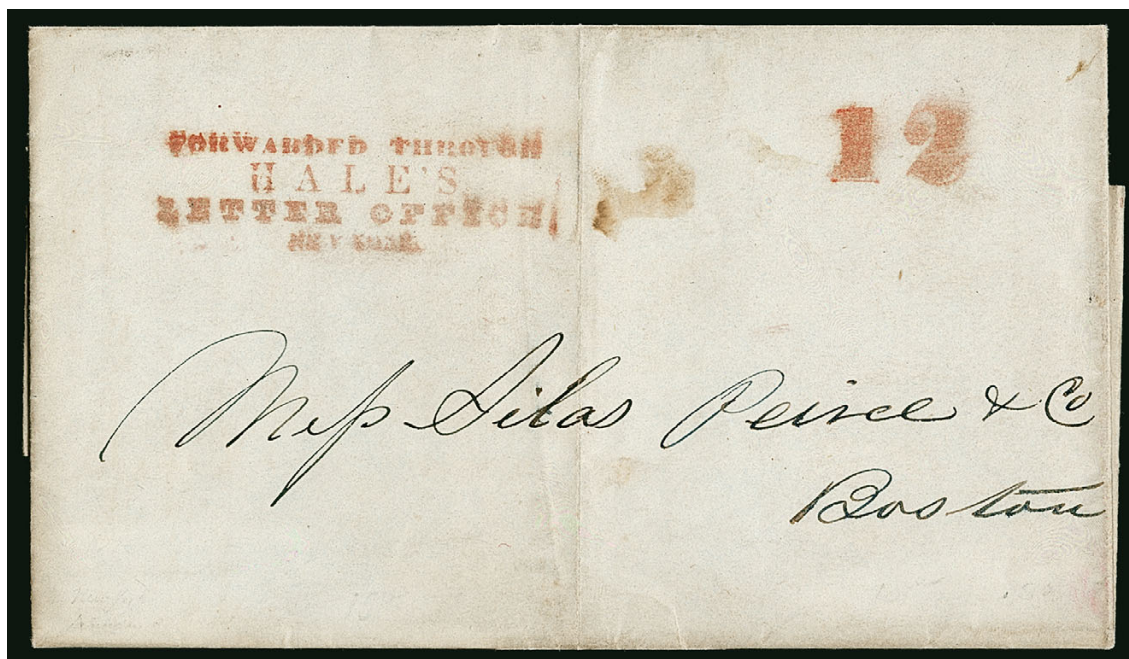 FORWARDED THROUGH
HALE'S
LETTER OFFICE
NEW YORK.
12
Mess Silas Peirce & Co
Boston